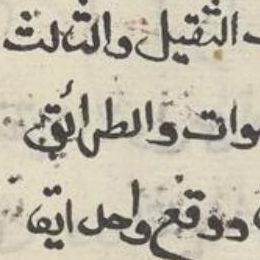 الثقيل والثالث
وات والطرائق
دوقع واحد ايقا